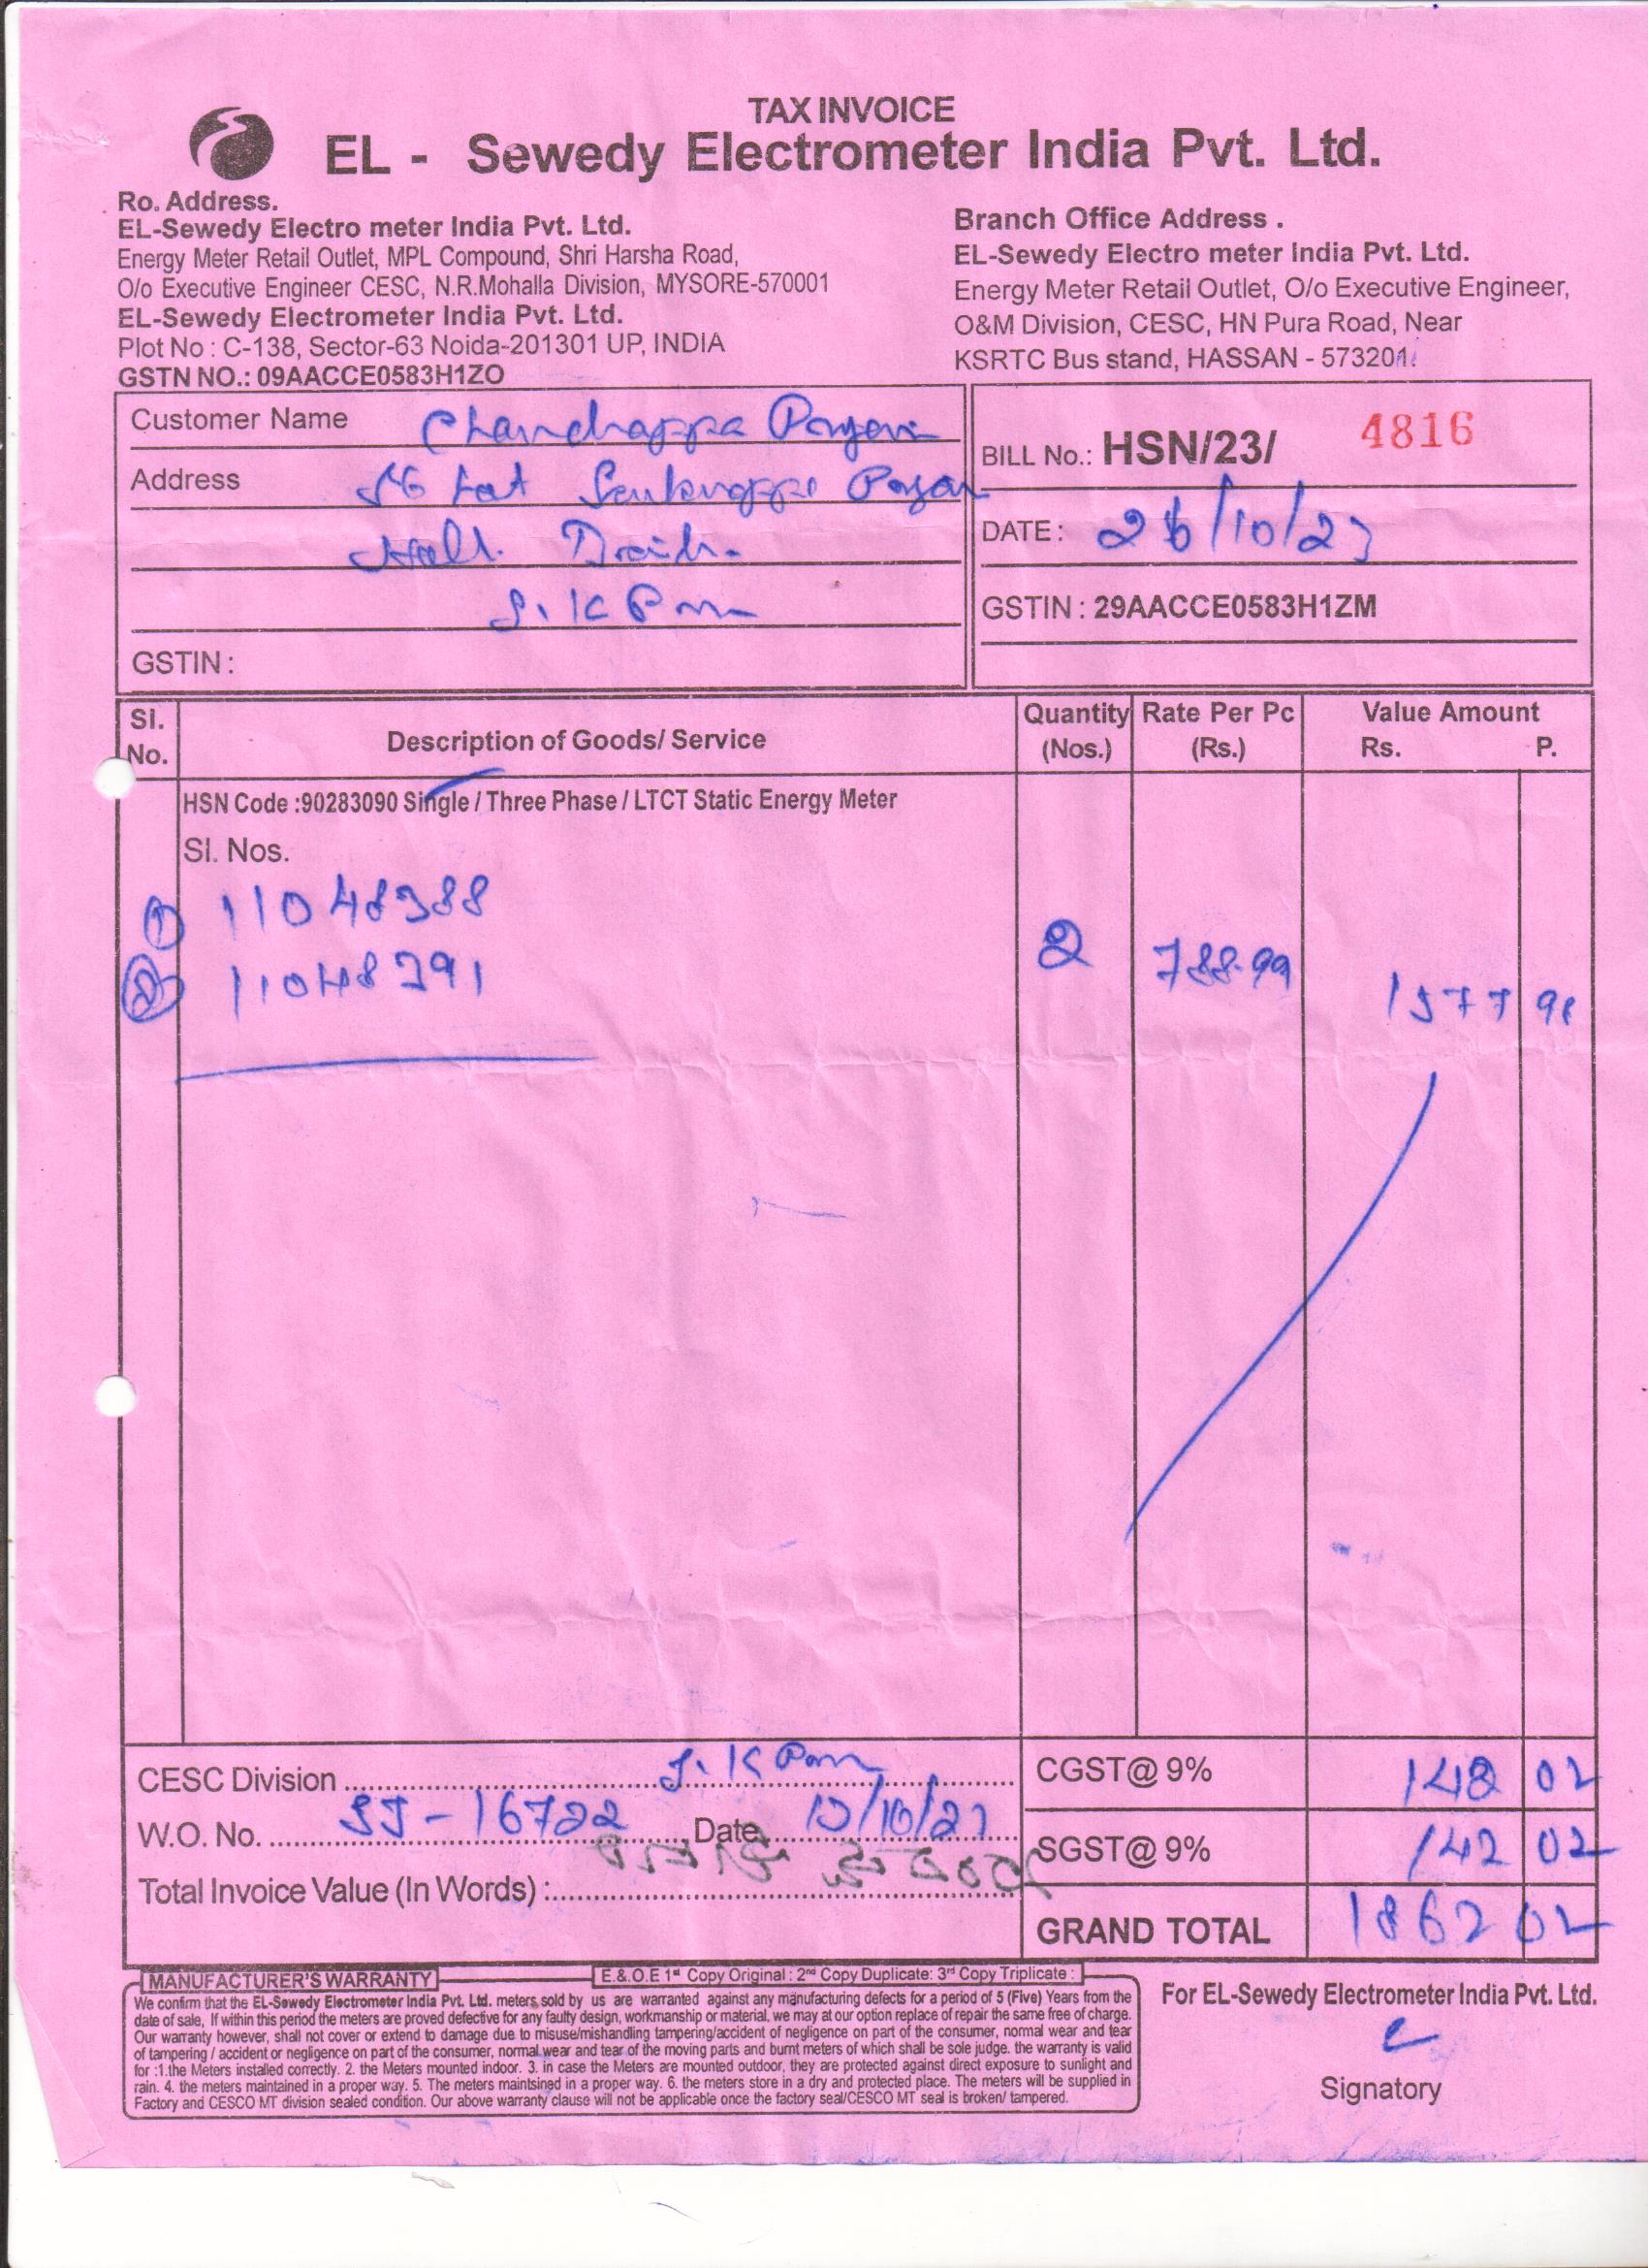 TAX INVOICE
EL - Sewedy Electrometer India Pvt. Ltd.
Ro. Address.
EL-Sewedy Electro meter India Pvt. Ltd.
Energy Meter Retail Outlet, MPL Compound, Shri Harsha Road,
O/o Executive Engineer CESC, N.R.Mohalla Division, MYSORE-570001
EL-Sewedy Electrometer India Pvt. Ltd.
Plot No : C-138, Sector-63 Noida-201301 UP, INDIA
GSTN NO.: 09AACCE0583H1ZO
Branch Office Address .
EL-Sewedy Electro meter India Pvt. Ltd.
Energy Meter Retail Outlet, O/o Executive Engineer,
O&M Division, CESC, HN Pura Road, Near
KSRTC Bus stand, HASSAN - 573201.
Customer Name Chandrappa
Address
GSTIN :
BILL No.: HSN/23/ 4816
DATE : 26/10/23
GSTIN : 29AACCE0583H1ZM
Sl. No. Description of Goods/ Service Quantity (Nos.) Rate Per Pc (Rs.) Value Amount Rs. P.
HSN Code :90283090 Single / Three Phase / LTCT Static Energy Meter
Sl. Nos.
1 11048388
2 11048391 2 788.99 1577 98
CESC Division
W.O. No. Date
Total Invoice Value (In Words) :
CGST@ 9% 142 02
SGST@ 9% 142 02
GRAND TOTAL 1862 02
MANUFACTURER'S WARRANTY E.& O.E 1st Copy Original : 2nd Copy Duplicate: 3rd Copy Triplicate :
We confirm that the EL-Sewedy Electrometer India Pvt. Ltd. meters sold by us are warranted against any manufacturing defects for a period of 5 (Five) Years from the
date of sale, If within this period the meters are proved defective for any faulty design, workmanship or material, we may at our option replace of repair the same free of charge.
Our warranty however, shall not cover or extend to damage due to misuse/mishandling tampering/accident of negligence on part of the consumer, normal wear and tear
of tampering / accident or negligence on part of the consumer, normal wear and tear of the moving parts and burnt meters of which shall be sole judge. the warranty is valid
for :1.the Meters installed correctly. 2. the Meters mounted indoor. 3. in case the Meters are mounted outdoor, they are protected against direct exposure to sunlight and
rain. 4. the meters maintained in a proper way. 5. The meters maintsined in a proper way. 6. the meters store in a dry and protected place. The meters will be supplied in
Factory and CESCO MT division sealed condition. Our above warranty clause will not be applicable once the factory seal/CESCO MT seal is broken/ tampered.
For EL-Sewedy Electrometer India Pvt. Ltd.
Signatory